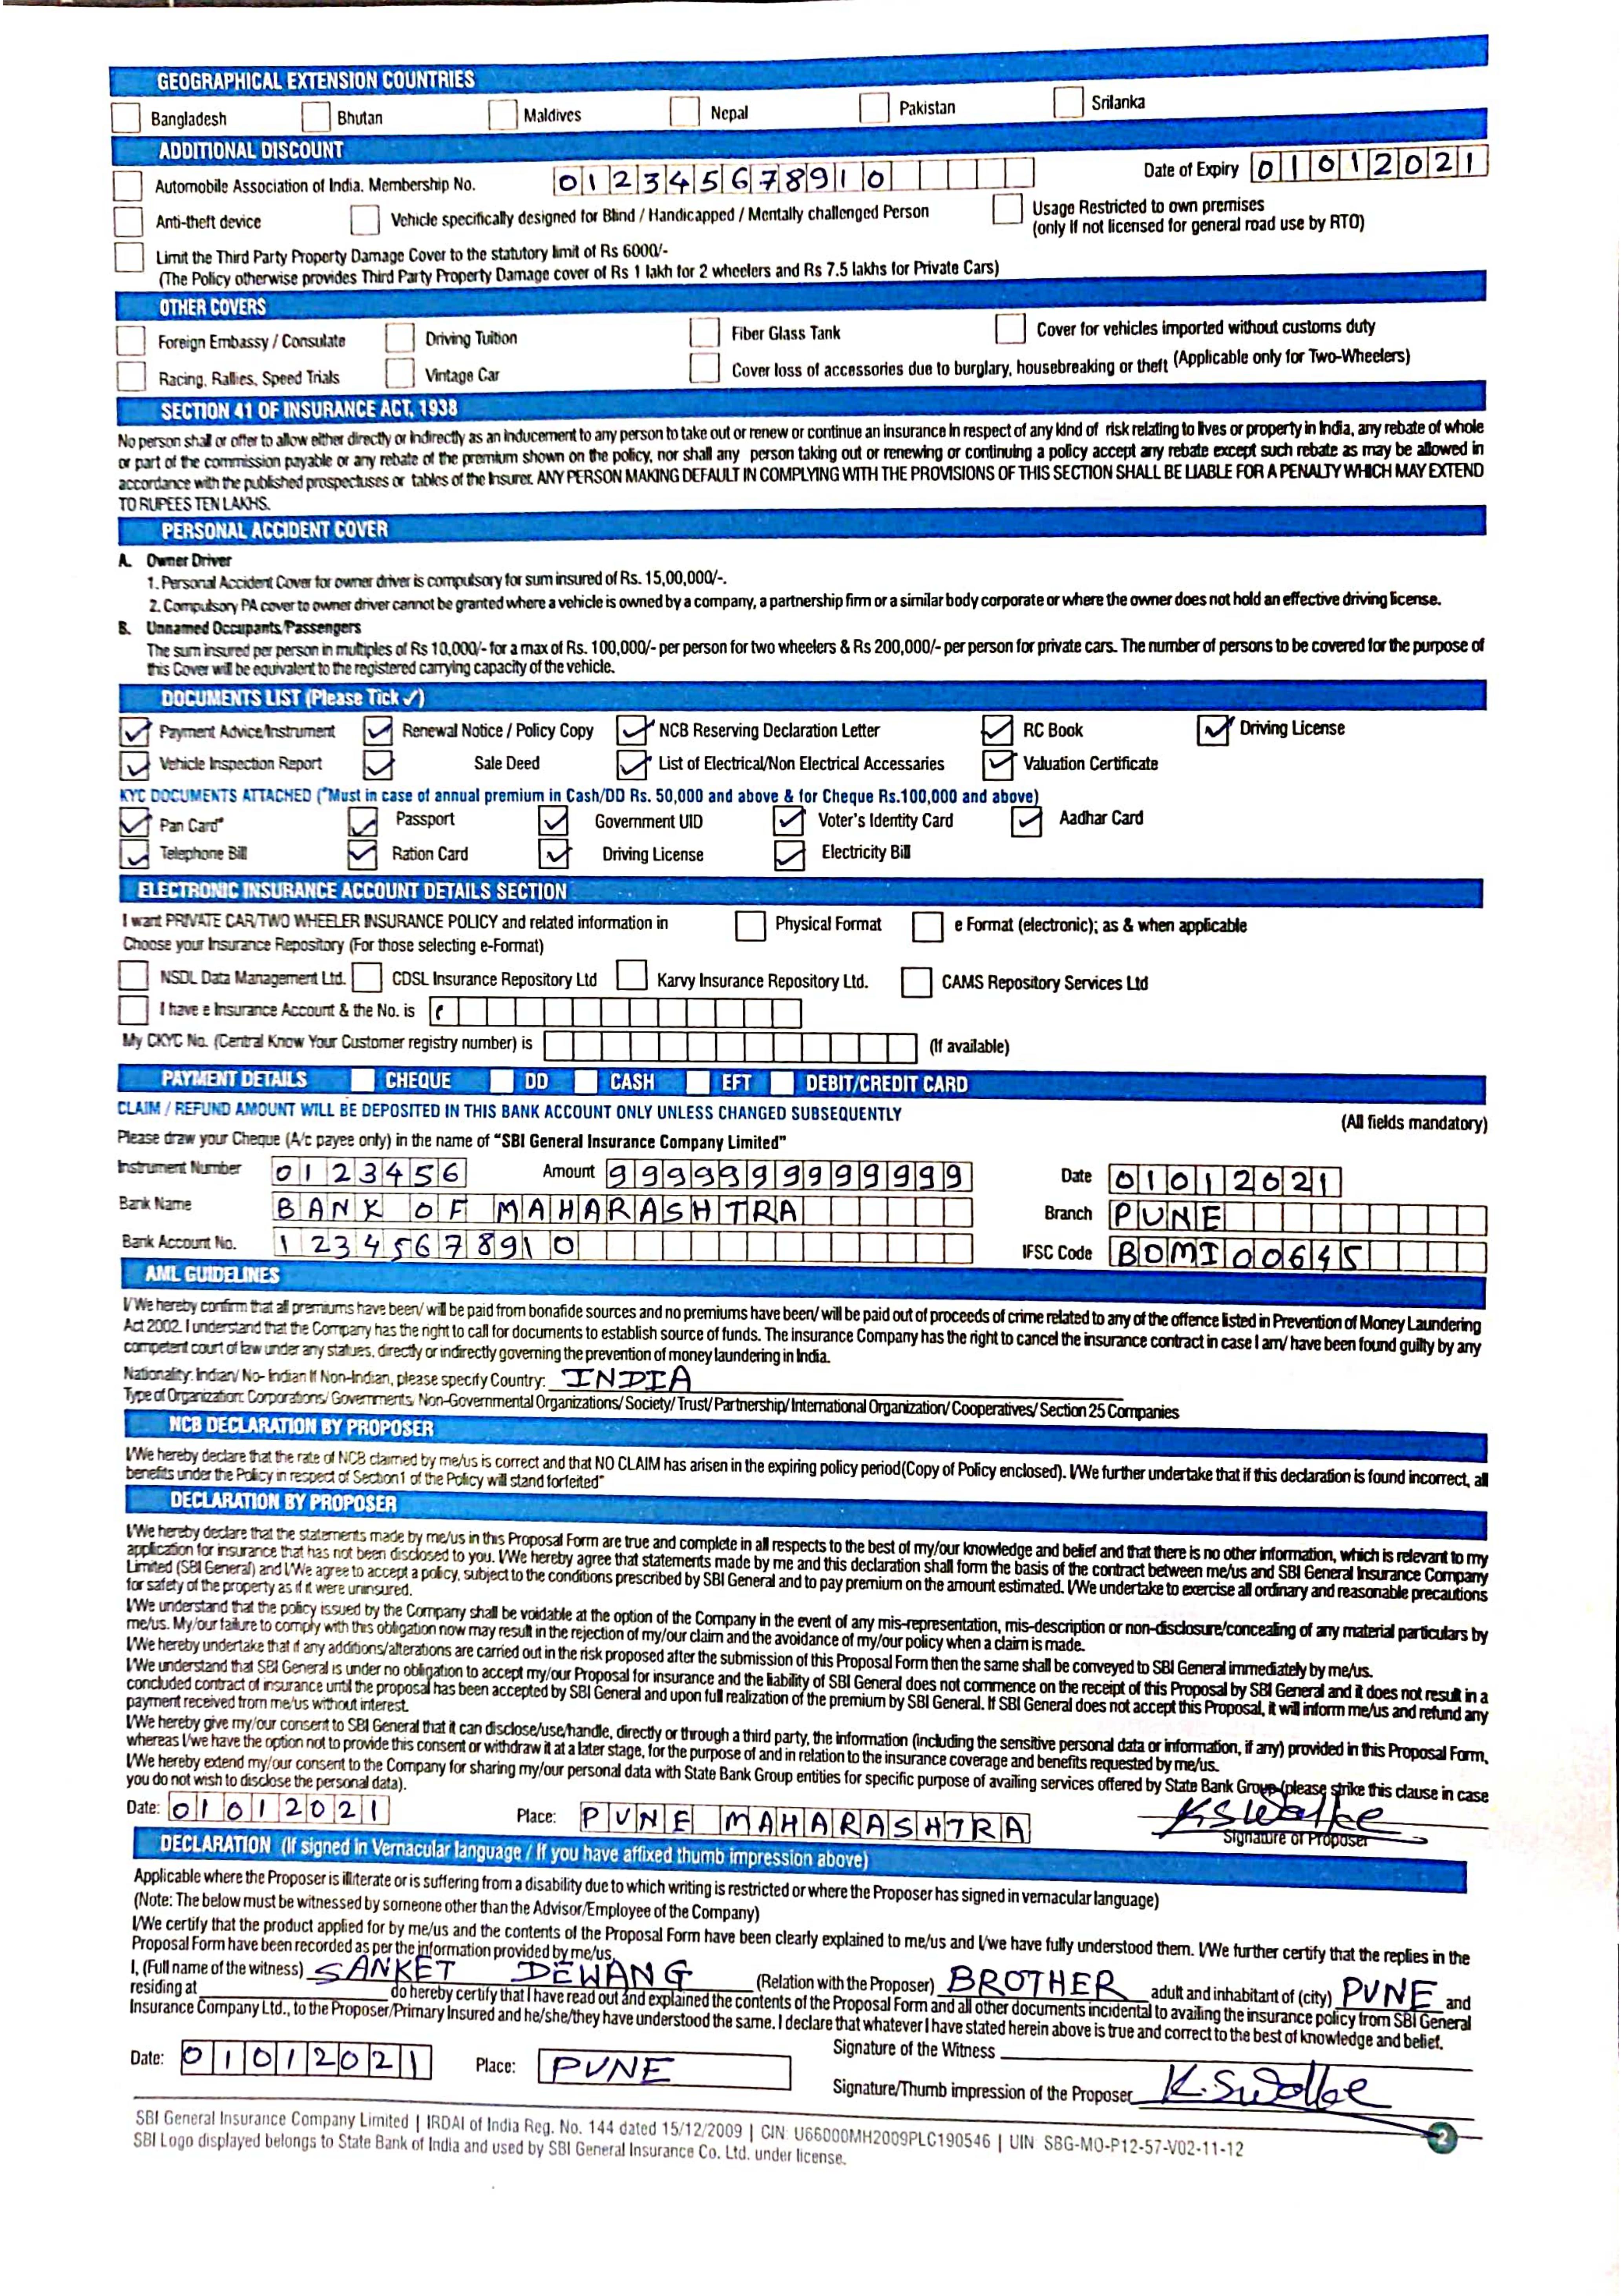 GEOGRAPHICAL EXTENSION COUNTRIES
Bangladesh Bhutan Maldives Nepal Pakistan Srilanka
ADDITIONAL DISCOUNT
Automobile Association of India. Membership No. 012345678910 Date of Expiry 01012021
Anti-theft device Vehicle specifically designed for Blind / Handicapped / Mentally challenged Person Usage Restricted to own premises
(only if not licensed for general road use by RTO)
Limit the Third Party Property Damage Cover to the statutory limit of Rs 6000/-
(The Policy otherwise provides Third Party Property Damage cover of Rs 1 lakh for 2 wheelers and Rs 7.5 lakhs for Private Cars)
OTHER COVERS
Foreign Embassy / Consulate Driving Tuition Fiber Glass Tank Cover for vehicles imported without customs duty
Racing, Rallies, Speed Trials Vintage Car Cover loss of accessories due to burglary, housebreaking or theft (Applicable only for Two-Wheelers)
SECTION 41 OF INSURANCE ACT, 1938
No person shall or offer to allow either directly or indirectly as an inducement to any person to take out or renew or continue an insurance in respect of any kind of risk relating to lives or property in India, any rebate of whole
or part of the commission payable or any rebate of the premium shown on the policy, nor shall any person taking out or renewing or continuing a policy accept any rebate except such rebate as may be allowed in
accordance with the published prospectuses or tables of the Insurer. ANY PERSON MAKING DEFAULT IN COMPLYING WITH THE PROVISIONS OF THIS SECTION SHALL BE LIABLE FOR A PENALTY WHICH MAY EXTEND
TO RUPEES TEN LAKHS.
PERSONAL ACCIDENT COVER
A. Owner Driver
1. Personal Accident Cover for owner driver is compulsory for sum insured of Rs. 15,00,000/-.
2. Compulsory PA cover to owner driver cannot be granted where a vehicle is owned by a company, a partnership firm or a similar body corporate or where the owner does not hold an effective driving license.
B. Unnamed Occupants/Passengers
The sum insured per person in multiples of Rs 10,000/- for a max of Rs. 100,000/- per person for two wheelers & Rs 200,000/- per person for private cars. The number of persons to be covered for the purpose of
this Cover will be equivalent to the registered carrying capacity of the vehicle.
DOCUMENTS LIST (Please Tick ✓)
✓ Payment Advice/Instrument ✓ Renewal Notice / Policy Copy ✓ NCB Reserving Declaration Letter ✓ RC Book ✓ Driving License
✓ Vehicle Inspection Report ✓ Sale Deed ✓ List of Electrical/Non Electrical Accessaries ✓ Valuation Certificate
KYC DOCUMENTS ATTACHED (*Must in case of annual premium in Cash/DD Rs. 50,000 and above & for Cheque Rs.100,000 and above)
✓ Pan Card* ✓ Passport ✓ Government UID ✓ Voter's Identity Card ✓ Aadhar Card
✓ Telephone Bill ✓ Ration Card ✓ Driving License ✓ Electricity Bill
ELECTRONIC INSURANCE ACCOUNT DETAILS SECTION
I want PRIVATE CAR/TWO WHEELER INSURANCE POLICY and related information in Physical Format e Format (electronic); as & when applicable
Choose your Insurance Repository (For those selecting e-Format)
NSDL Data Management Ltd. CDSL Insurance Repository Ltd Karvy Insurance Repository Ltd. CAMS Repository Services Ltd
I have e Insurance Account & the No. is
My CKYC No. (Central Know Your Customer registry number) is (If available)
PAYMENT DETAILS CHEQUE DD CASH EFT DEBIT/CREDIT CARD
CLAIM / REFUND AMOUNT WILL BE DEPOSITED IN THIS BANK ACCOUNT ONLY UNLESS CHANGED SUBSEQUENTLY (All fields mandatory)
Please draw your Cheque (A/c payee only) in the name of "SBI General Insurance Company Limited"
Instrument Number 0123456 Amount 9999999999999 Date 01012021
Bank Name BANK OF MAHARASHTRA Branch PUNE
Bank Account No. 12345678910 IFSC Code BOMI00645
AML GUIDELINES
I/We hereby confirm that all premiums have been/ will be paid from bonafide sources and no premiums have been/ will be paid out of proceeds of crime related to any of the offence listed in Prevention of Money Laundering
Act 2002. I understand that the Company has the right to call for documents to establish source of funds. The insurance Company has the right to cancel the insurance contract in case I am/ have been found guilty by any
competent court of law under any statues, directly or indirectly governing the prevention of money laundering in India.
Nationality: Indian/ No- Indian If Non-Indian, please specify Country: INDIA
Type of Organization: Corporations/ Governments, Non-Governmental Organizations/ Society/ Trust/ Partnership/ International Organization/ Cooperatives/ Section 25 Companies
NCB DECLARATION BY PROPOSER
I/We hereby declare that the rate of NCB claimed by me/us is correct and that NO CLAIM has arisen in the expiring policy period(Copy of Policy enclosed). I/We further undertake that if this declaration is found incorrect, all
benefits under the Policy in respect of Section1 of the Policy will stand forfeited"
DECLARATION BY PROPOSER
I/We hereby declare that the statements made by me/us in this Proposal Form are true and complete in all respects to the best of my/our knowledge and belief and that there is no other information, which is relevant to my
application for insurance that has not been disclosed to you. I/We hereby agree that statements made by me and this declaration shall form the basis of the contract between me/us and SBI General Insurance Company
Limited (SBI General) and I/We agree to accept a policy, subject to the conditions prescribed by SBI General and to pay premium on the amount estimated. I/We undertake to exercise all ordinary and reasonable precautions
for safety of the property as if it were uninsured.
I/We understand that the policy issued by the Company shall be voidable at the option of the Company in the event of any mis-representation, mis-description or non-disclosure/concealing of any material particulars by
me/us. My/our failure to comply with this obligation now may result in the rejection of my/our claim and the avoidance of my/our policy when a claim is made.
I/We hereby undertake that if any additions/alterations are carried out in the risk proposed after the submission of this Proposal Form then the same shall be conveyed to SBI General immediately by me/us.
I/We understand that SBI General is under no obligation to accept my/our Proposal for insurance and the liability of SBI General does not commence on the receipt of this Proposal by SBI General and it does not result in a
concluded contract of insurance until the proposal has been accepted by SBI General and upon full realization of the premium by SBI General. If SBI General does not accept this Proposal, it will inform me/us and refund any
payment received from me/us without interest.
I/We hereby give my/our consent to SBI General that it can disclose/use/handle, directly or through a third party, the information (including the sensitive personal data or information, if any) provided in this Proposal Form,
whereas I/we have the option not to provide this consent or withdraw it at a later stage, for the purpose of and in relation to the insurance coverage and benefits requested by me/us.
I/We hereby extend my/our consent to the Company for sharing my/our personal data with State Bank Group entities for specific purpose of availing services offered by State Bank Group (please strike this clause in case
you do not wish to disclose the personal data).
Date: 01012021 Place: PUNE MAHARASHTRA KSWalke
Signature of Proposer
DECLARATION (If signed in Vernacular language / If you have affixed thumb impression above)
Applicable where the Proposer is illiterate or is suffering from a disability due to which writing is restricted or where the Proposer has signed in vernacular language)
(Note: The below must be witnessed by someone other than the Advisor/Employee of the Company)
I/We certify that the product applied for by me/us and the contents of the Proposal Form have been clearly explained to me/us and I/we have fully understood them. I/We further certify that the replies in the
Proposal Form have been recorded as per the information provided by me/us.
I, (Full name of the witness) SANKET DEWANG (Relation with the Proposer) BROTHER adult and inhabitant of (city) PUNE and
residing at do hereby certify that I have read out and explained the contents of the Proposal Form and all other documents incidental to availing the insurance policy from SBI General
Insurance Company Ltd., to the Proposer/Primary Insured and he/she/they have understood the same. I declare that whatever I have stated herein above is true and correct to the best of knowledge and belief.
Date: 01012021 Place: PUNE Signature of the Witness
Signature/Thumb impression of the Proposer K.SWalke
SBI General Insurance Company Limited | IRDAI of India Reg. No. 144 dated 15/12/2009 | CIN: U66000MH2009PLC190546 | UIN: SBG-MO-P12-57-V02-11-12
SBI Logo displayed belongs to State Bank of India and used by SBI General Insurance Co. Ltd. under license.
2